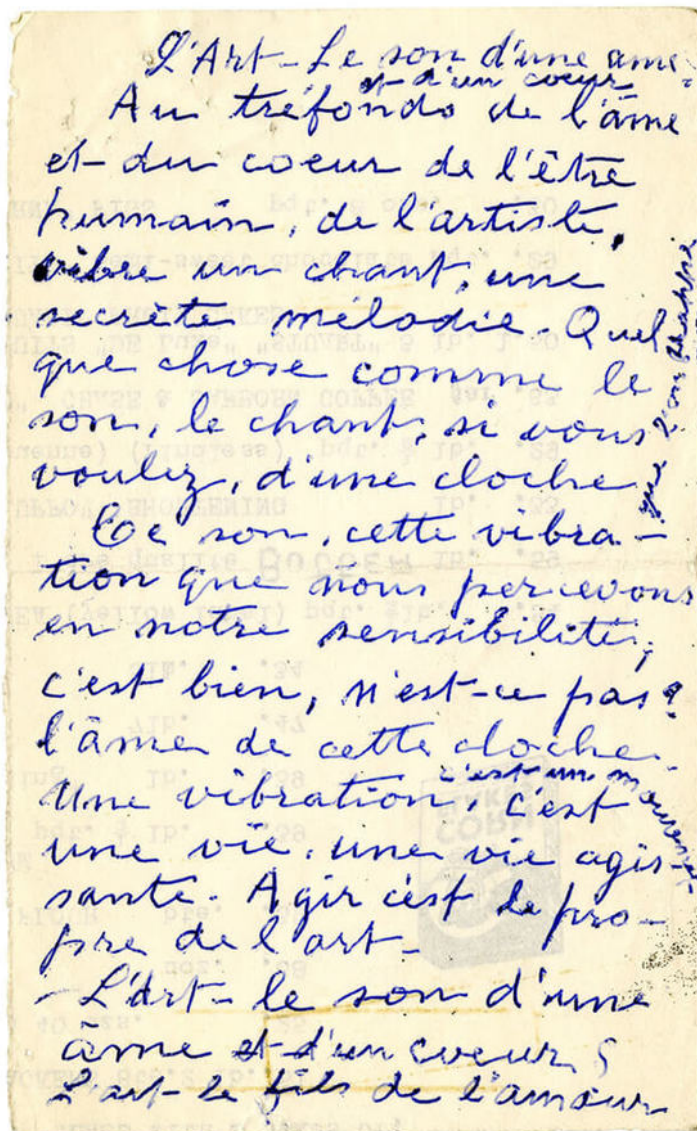 L'Art - Le son d'une âme
et d'un coeur
Au tréfonds de l'âme
et du coeur de l'être
humain, de l'artiste,
vibre un chant, une
secrète mélodie. Quel-
que chose comme le
son, le chant, si vous
voulez, d'une cloche
que l'on frappe
Ce son, cette vibra-
tion que nous percevons
en notre sensibilité,
c'est bien, n'est-ce pas?
l'âme de cette cloche.
Une vibration, c'est un mouvement
c'est
une vie, une vie agis
sante. Agir c'est le pro-
pre de l'art -
L'Art - le son d'une
âme et d'un coeur,
L'art - le fils de l'amour